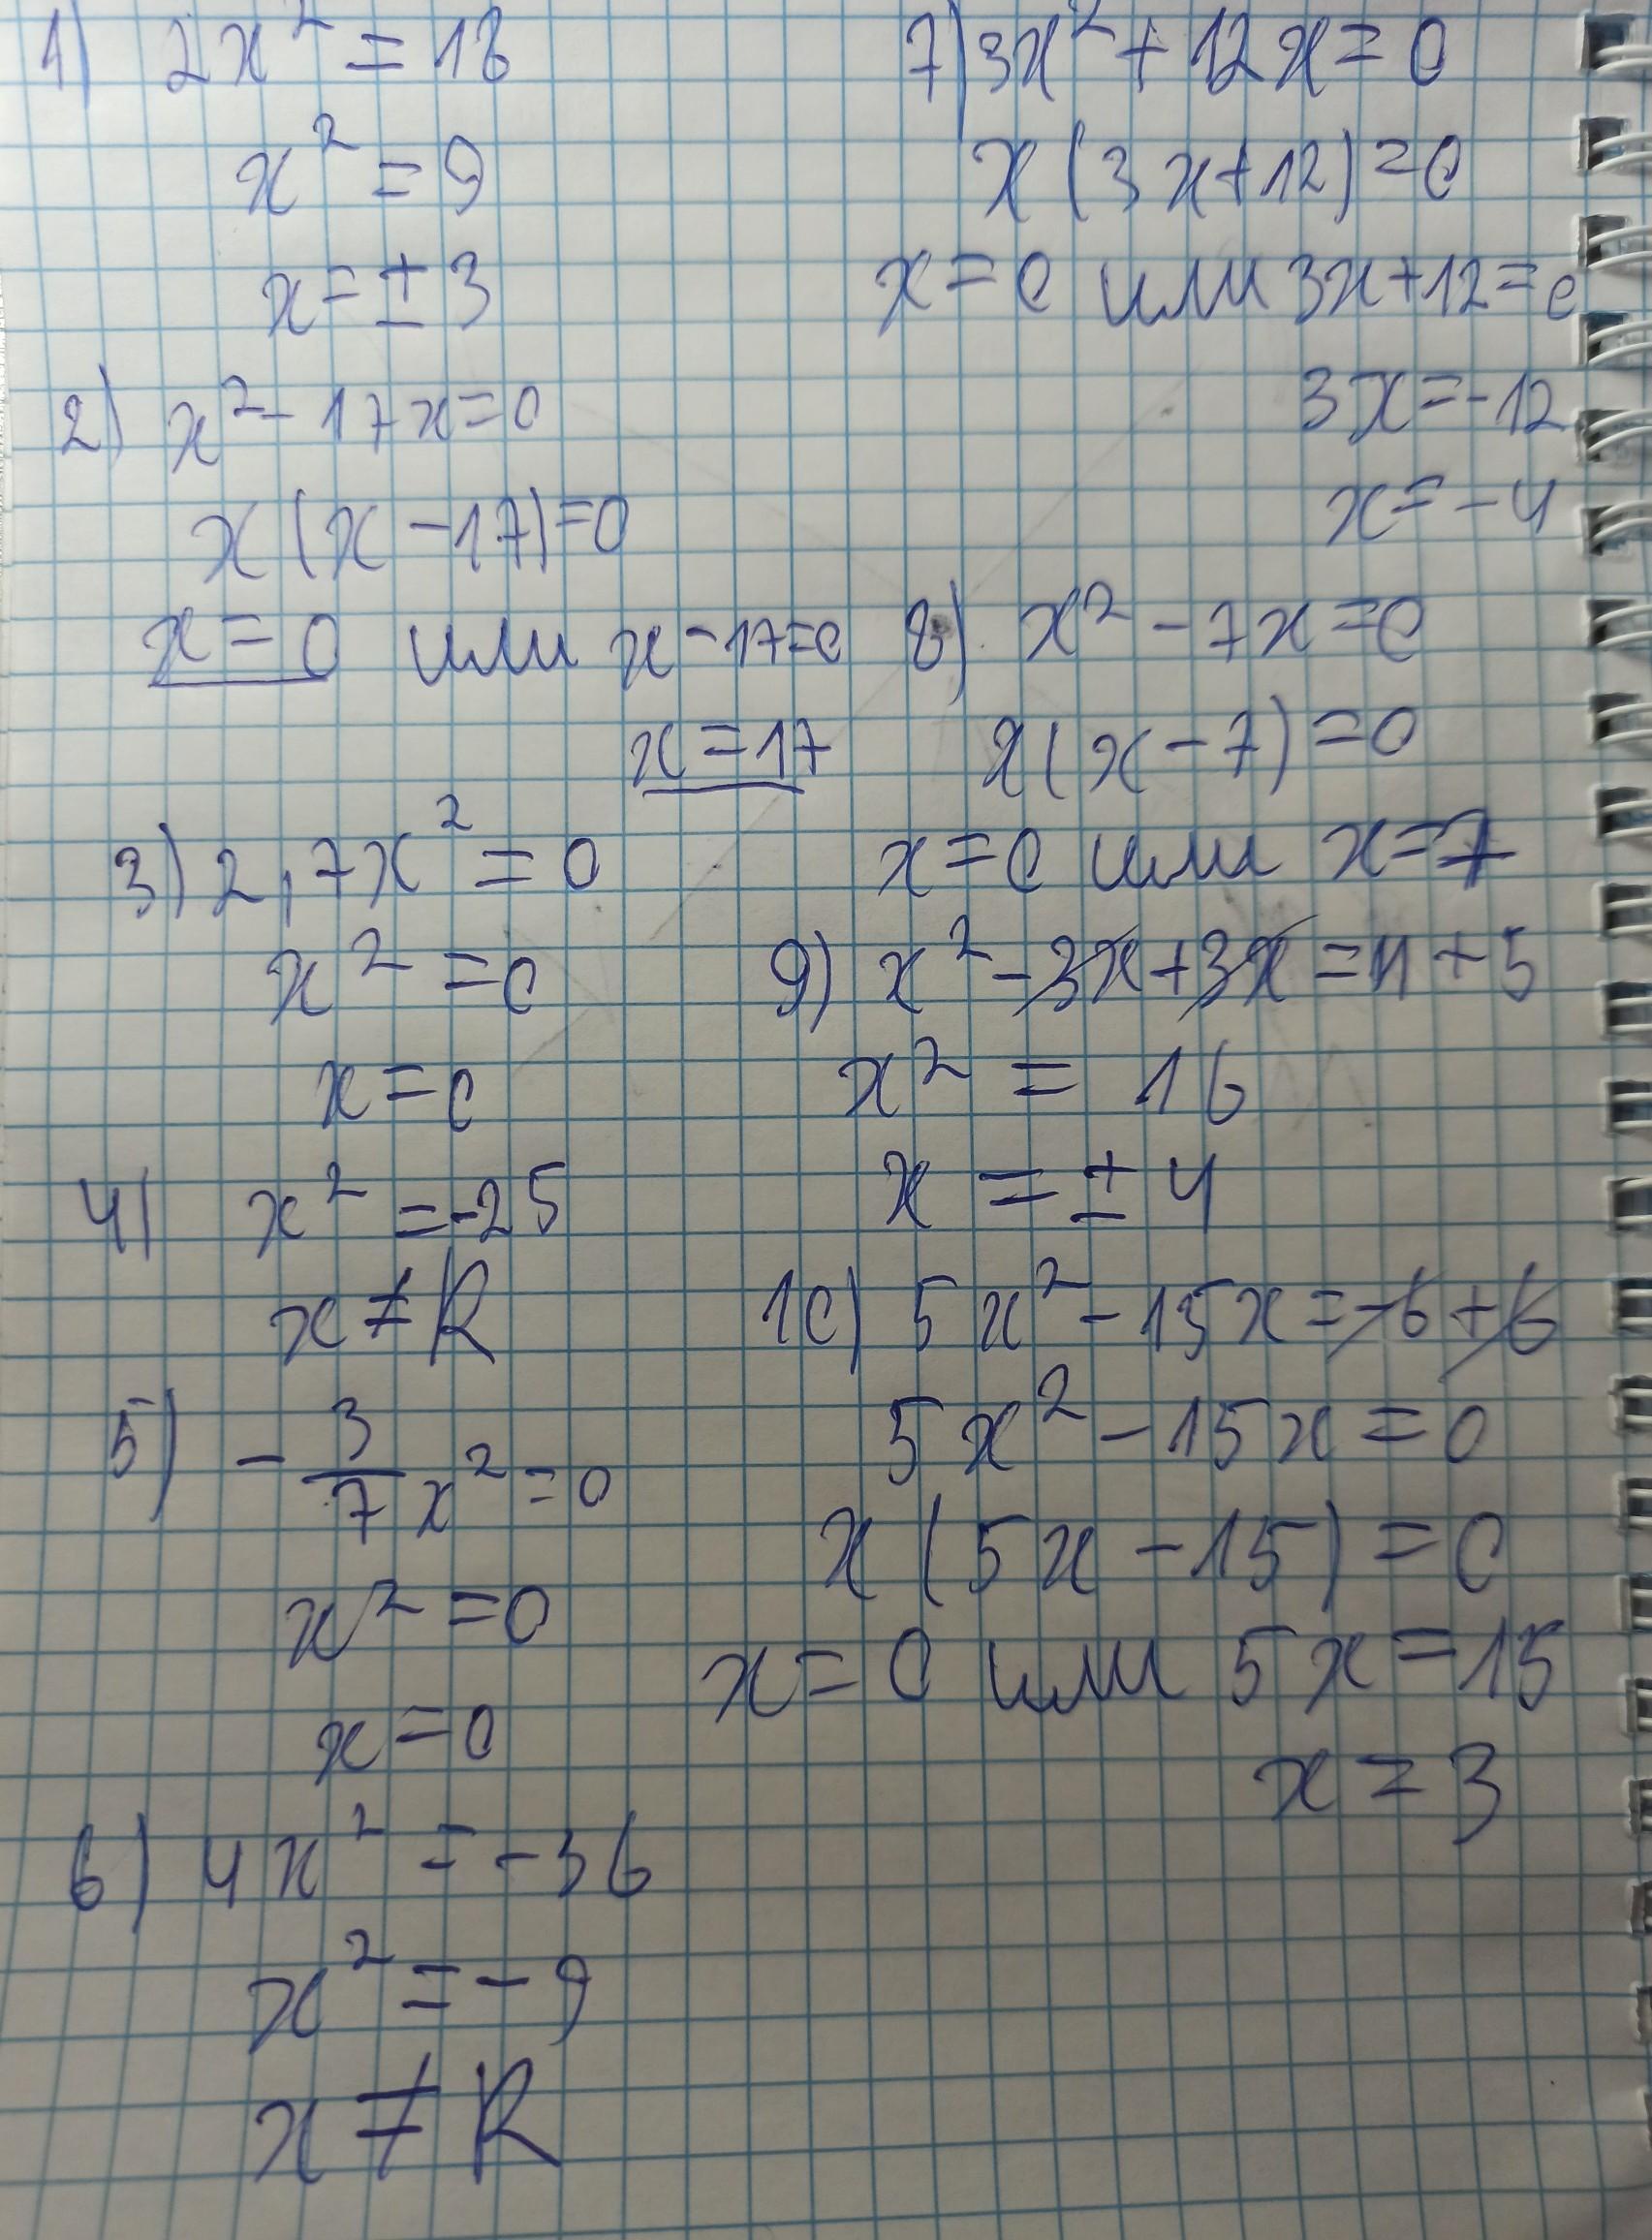 1) 2x² = 18
x² = 9
x = ± 3
2) x² - 17x = 0
x(x - 17) = 0
x = 0 или x - 17 = 0
x = 17
3) 2,7x² = 0
x² = 0
x = 0
4) x² = -25
x ≠ R
5) - 3/7 x² = 0
x² = 0
x = 0
6) 4x² = -36
x² = -9
x ≠ R
7) 3x² + 12x = 0
x(3x + 12) = 0
x = 0 или 3x + 12 = 0
3x = -12
x = -4
8) x² - 7x = 0
x(x - 7) = 0
x = 0 или x = 7
9) x² - 3x + 3x = 11 + 5
x² = 16
x = ± 4
10) 5x² - 15x = -6 + 6
5x² - 15x = 0
x(5x - 15) = 0
x = 0 или 5x = 15
x = 3